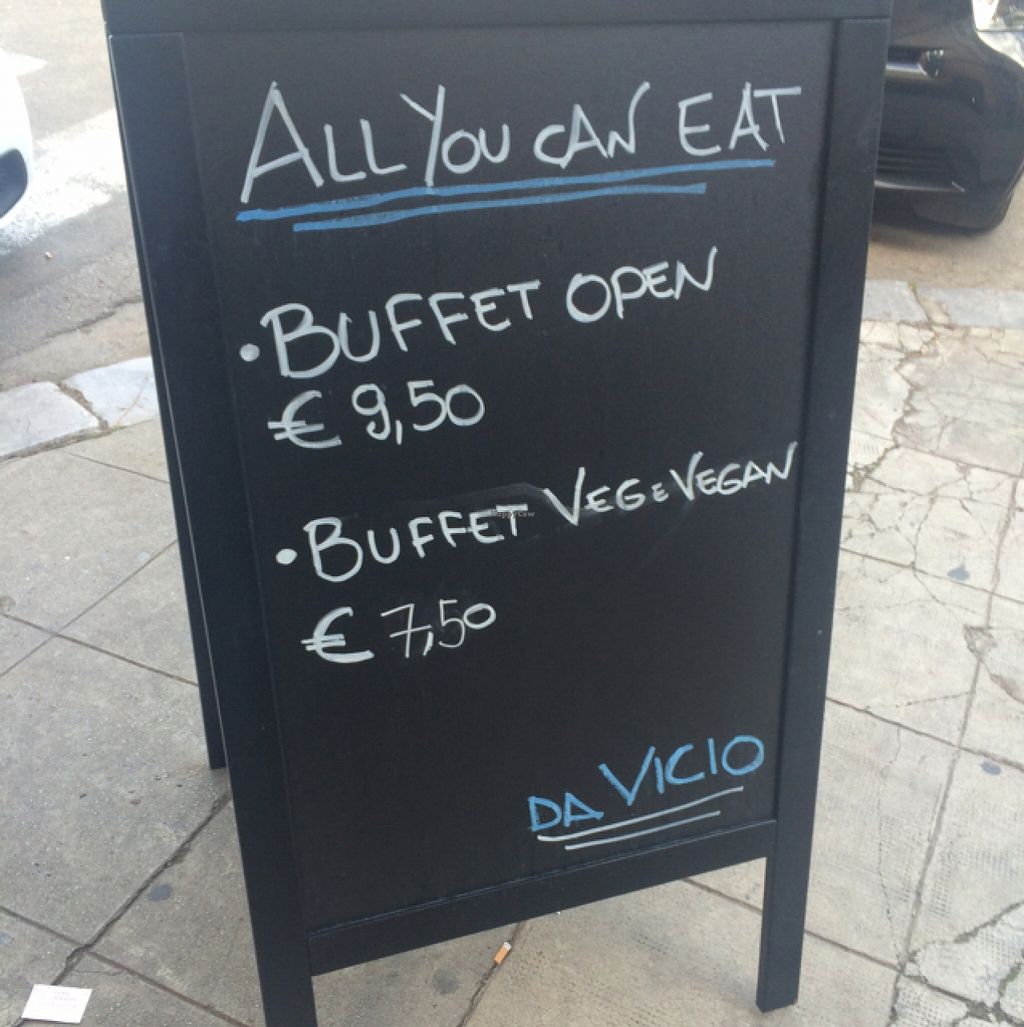 ALL YOU CAN EAT
• BUFFET OPEN
€ 9,50
• BUFFET VEG E VEGAN
€ 7,50
DA VICIO
HappyCow